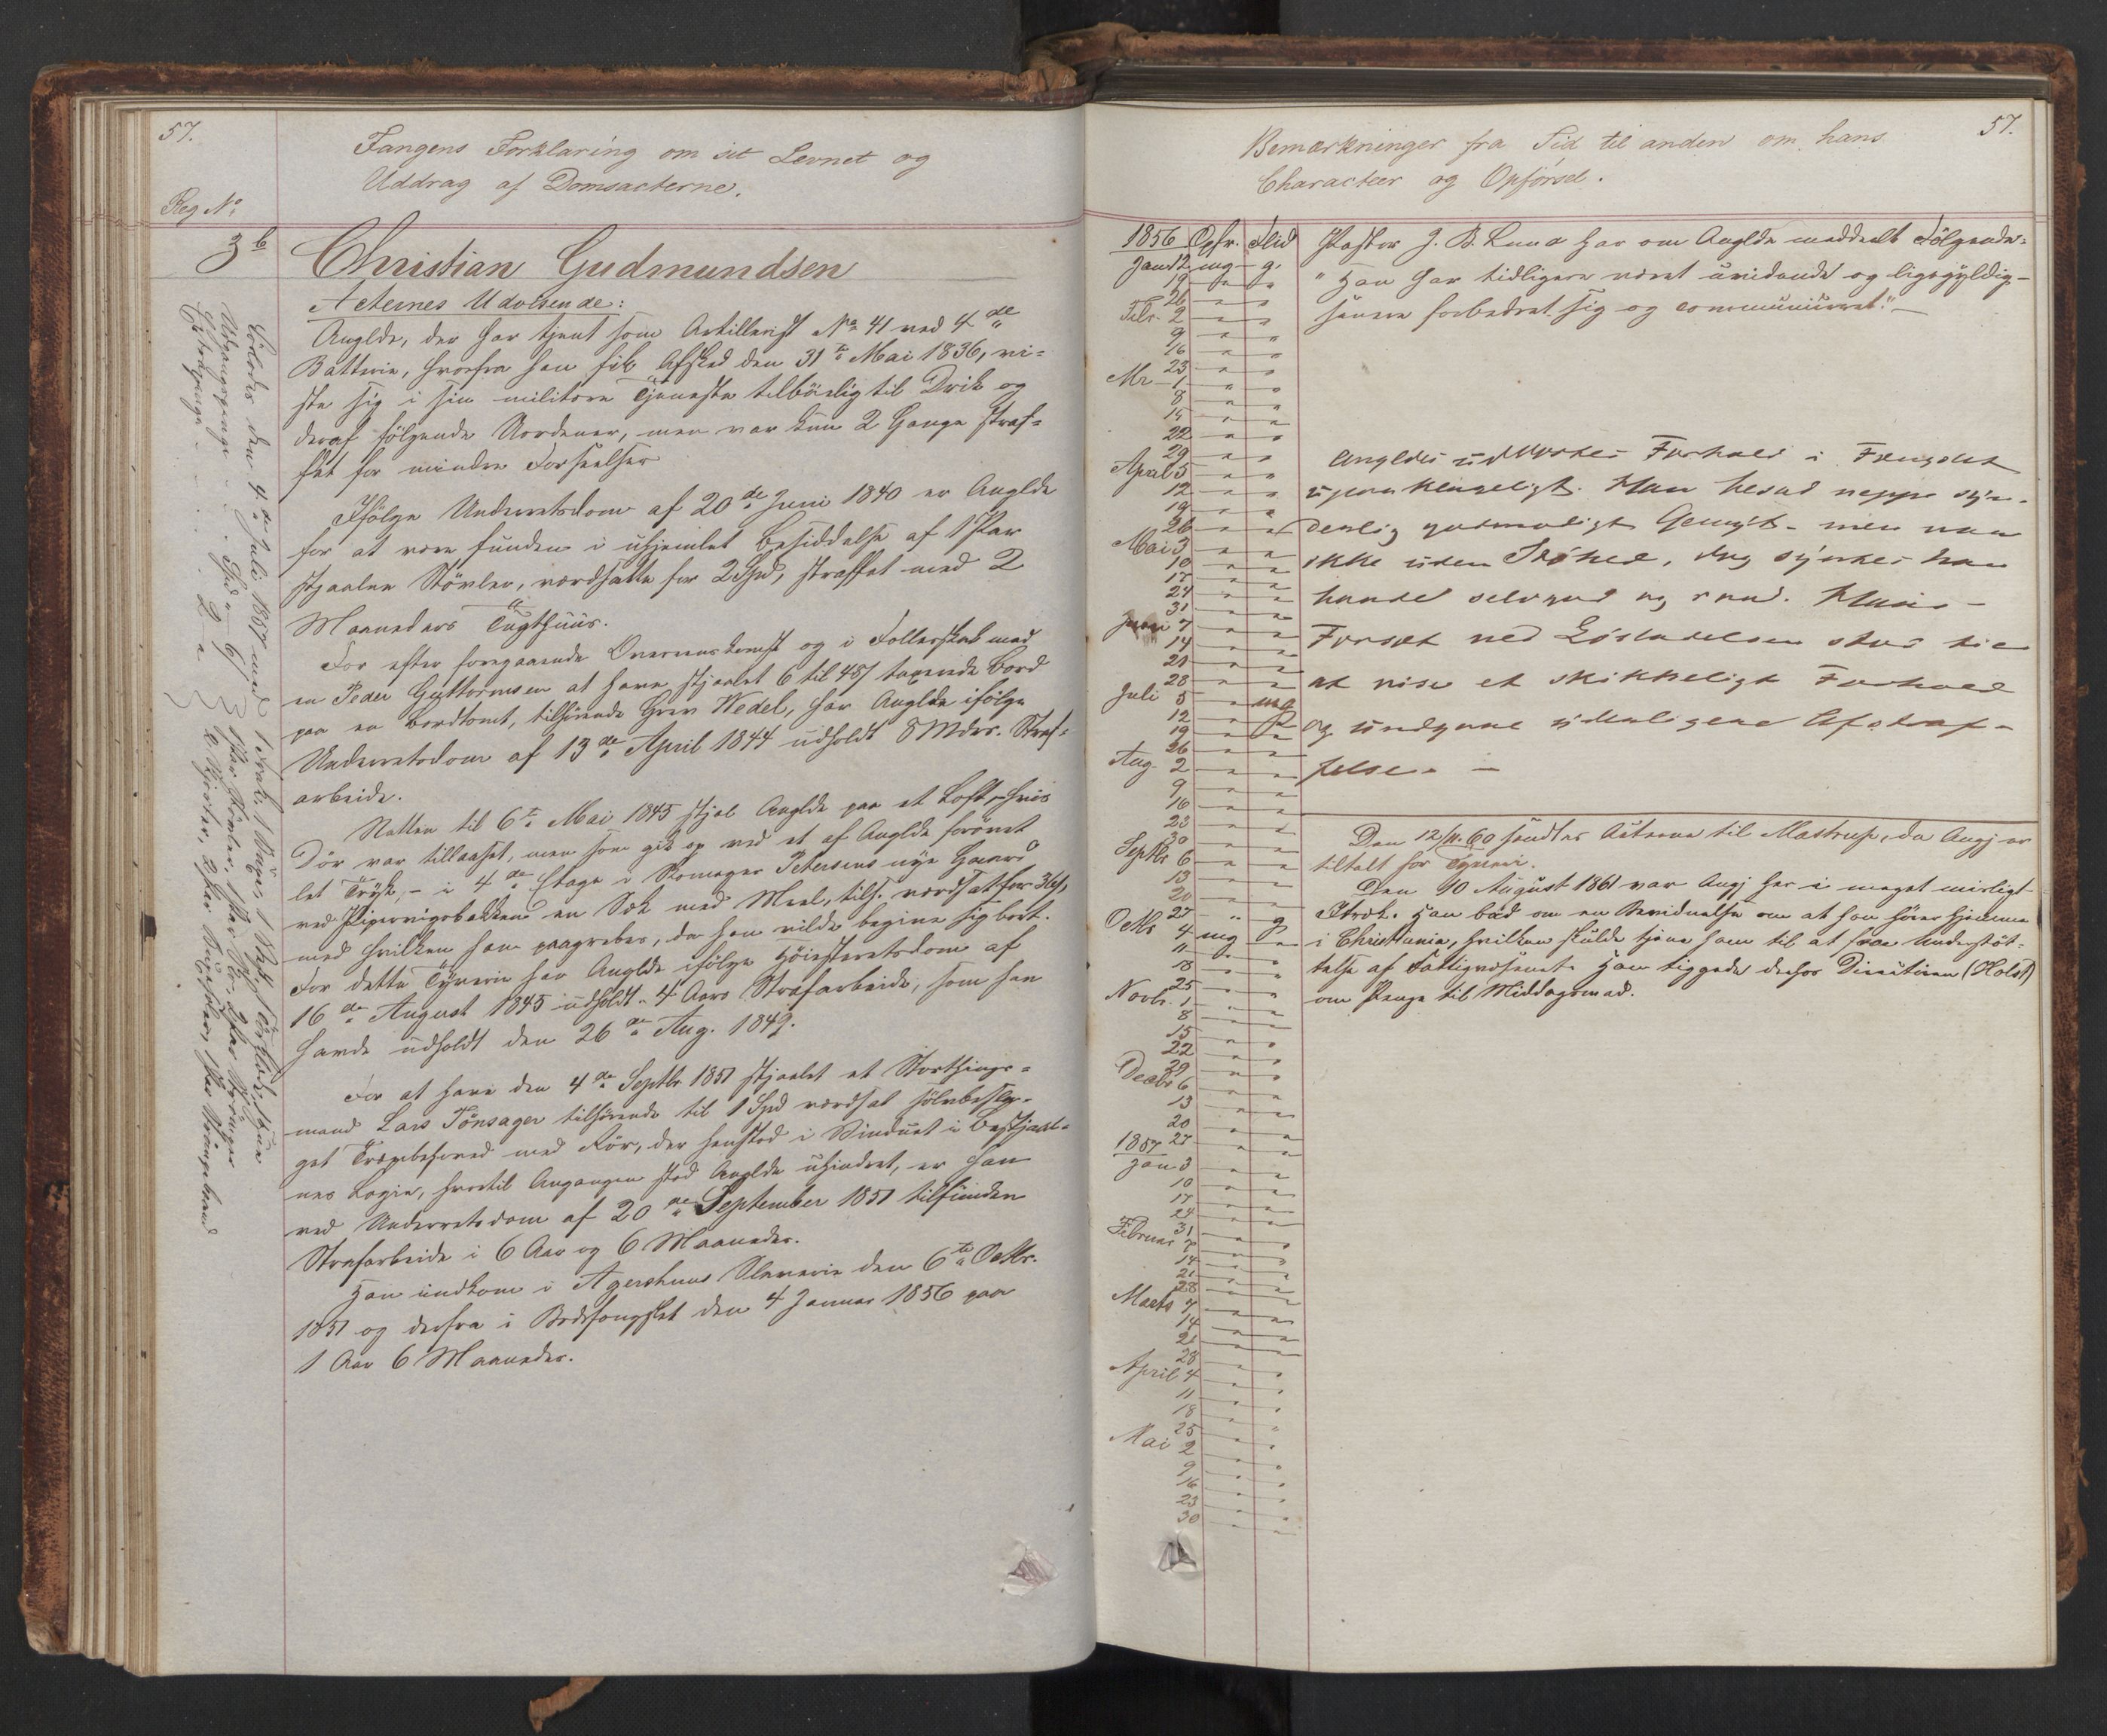 57.
Fangens Forklaring om sit Levnet og
Uddrag af Domsacterne.
Reg No
3b
Christian Gudmundsen
Acternes Udvisende:
Anglde, der har tjent som Artillerist No 41 ved 4de
Batterie, hvorfra han fik Afsked den 31te Mai 1836, vi-
ste sig i sin militære Tjeneste tilbøielig til Drik og
deraf følgende Uordener, men var kun 2 Gange straf-
fet for mindre Forseelser
Ifølge Underretsdom af 20de Juni 1840 er Anglde
for at være funden i uhjemlet Besiddelse af 1 Par
stjaalne Støvler, værdsatte for 2 Spd, straffet med 2
Maaneders Tugthuus.
For efter foregaaende Overenskomst og i Fællesskab med
en Peder Guttormsen at have stjaalet 6 til 48 s taxerede Bord
paa en Bordtomt, tilhørende Grev Wedel, har Anglde ifølge
Underretsdom af 13de April 1844 udholdt 8 Mdrs. Straf-
arbeide.
Natten til 6te Mai 1845 stjal Anglde paa et Loft, hvis
Dør var tillaaset, men som gik op ved et af Anglde forøvet
let Tryk, - i 4de Etage i Skomager Petersens nye Gaard
ved Pipervigsbakken en Sæk med Meel, tils. værdsat for 36 s,
med hvilken han paagrebes, da han vilde begive sig bort.
For dette Tyverie har Anglde ifølge Høiesteretsdom af
16de August 1845 udholdt 4 Aars Strafarbeide, som han
havde udholdt den 26de Aug. 1849.
For at have den 4de Septbr 1851 stjaalet et Storthings-
mand Lars Tønsager tilhørende til 1 Spd værdsat sølvbeslaa-
get Træpibehoved med Rør, der henstod i Vinduet i Bestjaal-
nes Logie, hvortil Adgangen stod Anglde uhindret, er han
ved Underretsdom af 20de September 1851 tilfunden
Strafarbeide i 6 Aar og 6 Maaneder.
Han indkom i Agershuus Slaverie den 6te Octbr.
1851 og derfra i Bodsfængslet den 4 Januar 1856 paa
1 Aar 6 Maaneder.
Løslodes den 4de Juli 1857 med
Udgangspenge
57.
Bemærkninger fra Tid til anden om hans
Characteer og Opførsel.
1856 Opfr. Flid
Jan 12 mg g.
19 " "
26 " "
Febr. 2 " "
9 " "
16 " "
23 " "
Mr 1 " "
8 " "
15 " "
22 " "
29 " "
April 5 " "
12 " "
19 " "
26 " "
Mai 3 " "
10 " "
17 " "
24 " "
31 " "
Juni 7 " "
14 " "
21 " "
28 " "
Juli 5 " mg
12 " g
19 " "
26 " "
Aug. 2 " "
9 " "
16 " "
23 " "
30 " "
Septbr 6 " "
13 " "
20 " "
27 " g
Octbr 4 mg "
11 " "
18 " "
25 " "
Novbr. 1 " "
8 " "
15 " "
22 " "
29 " "
Decbr 6 " "
13 " "
20 " "
27 " "
1857
Jan 3 " "
10 " "
17 " "
24 " "
31 " "
Februar 7 " "
14 " "
21 " "
28 " "
Marts 7 " "
14 " "
21 " "
28 " "
April 4 " "
11 " "
18 " "
25 " "
Mai 2 " "
9 " "
16 " "
23 " "
30 " "
Pastor J. B. Lund har om Anglde meddeelt Følgende:
"Han har tidligere været uvidende og ligegyldig-
senere forbedret sig og communiceret."
Angldes udvortes Forhold i Fængslet
upaaklageligt. Han besad neppe syn-
derlig godmodigt Gemyt - men var
ikke uden Raahed, dog syntes han
Forsæt ved Løsladelsen stod til
at vise et skikkeligt Forhold
og undgaae yderligere Afstraf-
felse. -
Den 12/11. 60 sendtes Attesten til Mastrup, da Angj er
tiltalt for Tyveri.
Den 10 August 1861 var Angj her i meget misligt
Ydre. Han bad om en Bevidnelse om at han hører hjemme
i Christiania, hvilken skulde tjene ham til at faae Understøt-
telse af Fattigvæsenet. Han tiggede derfor Directeuren (Holst)
om Penge til Middagsmad.